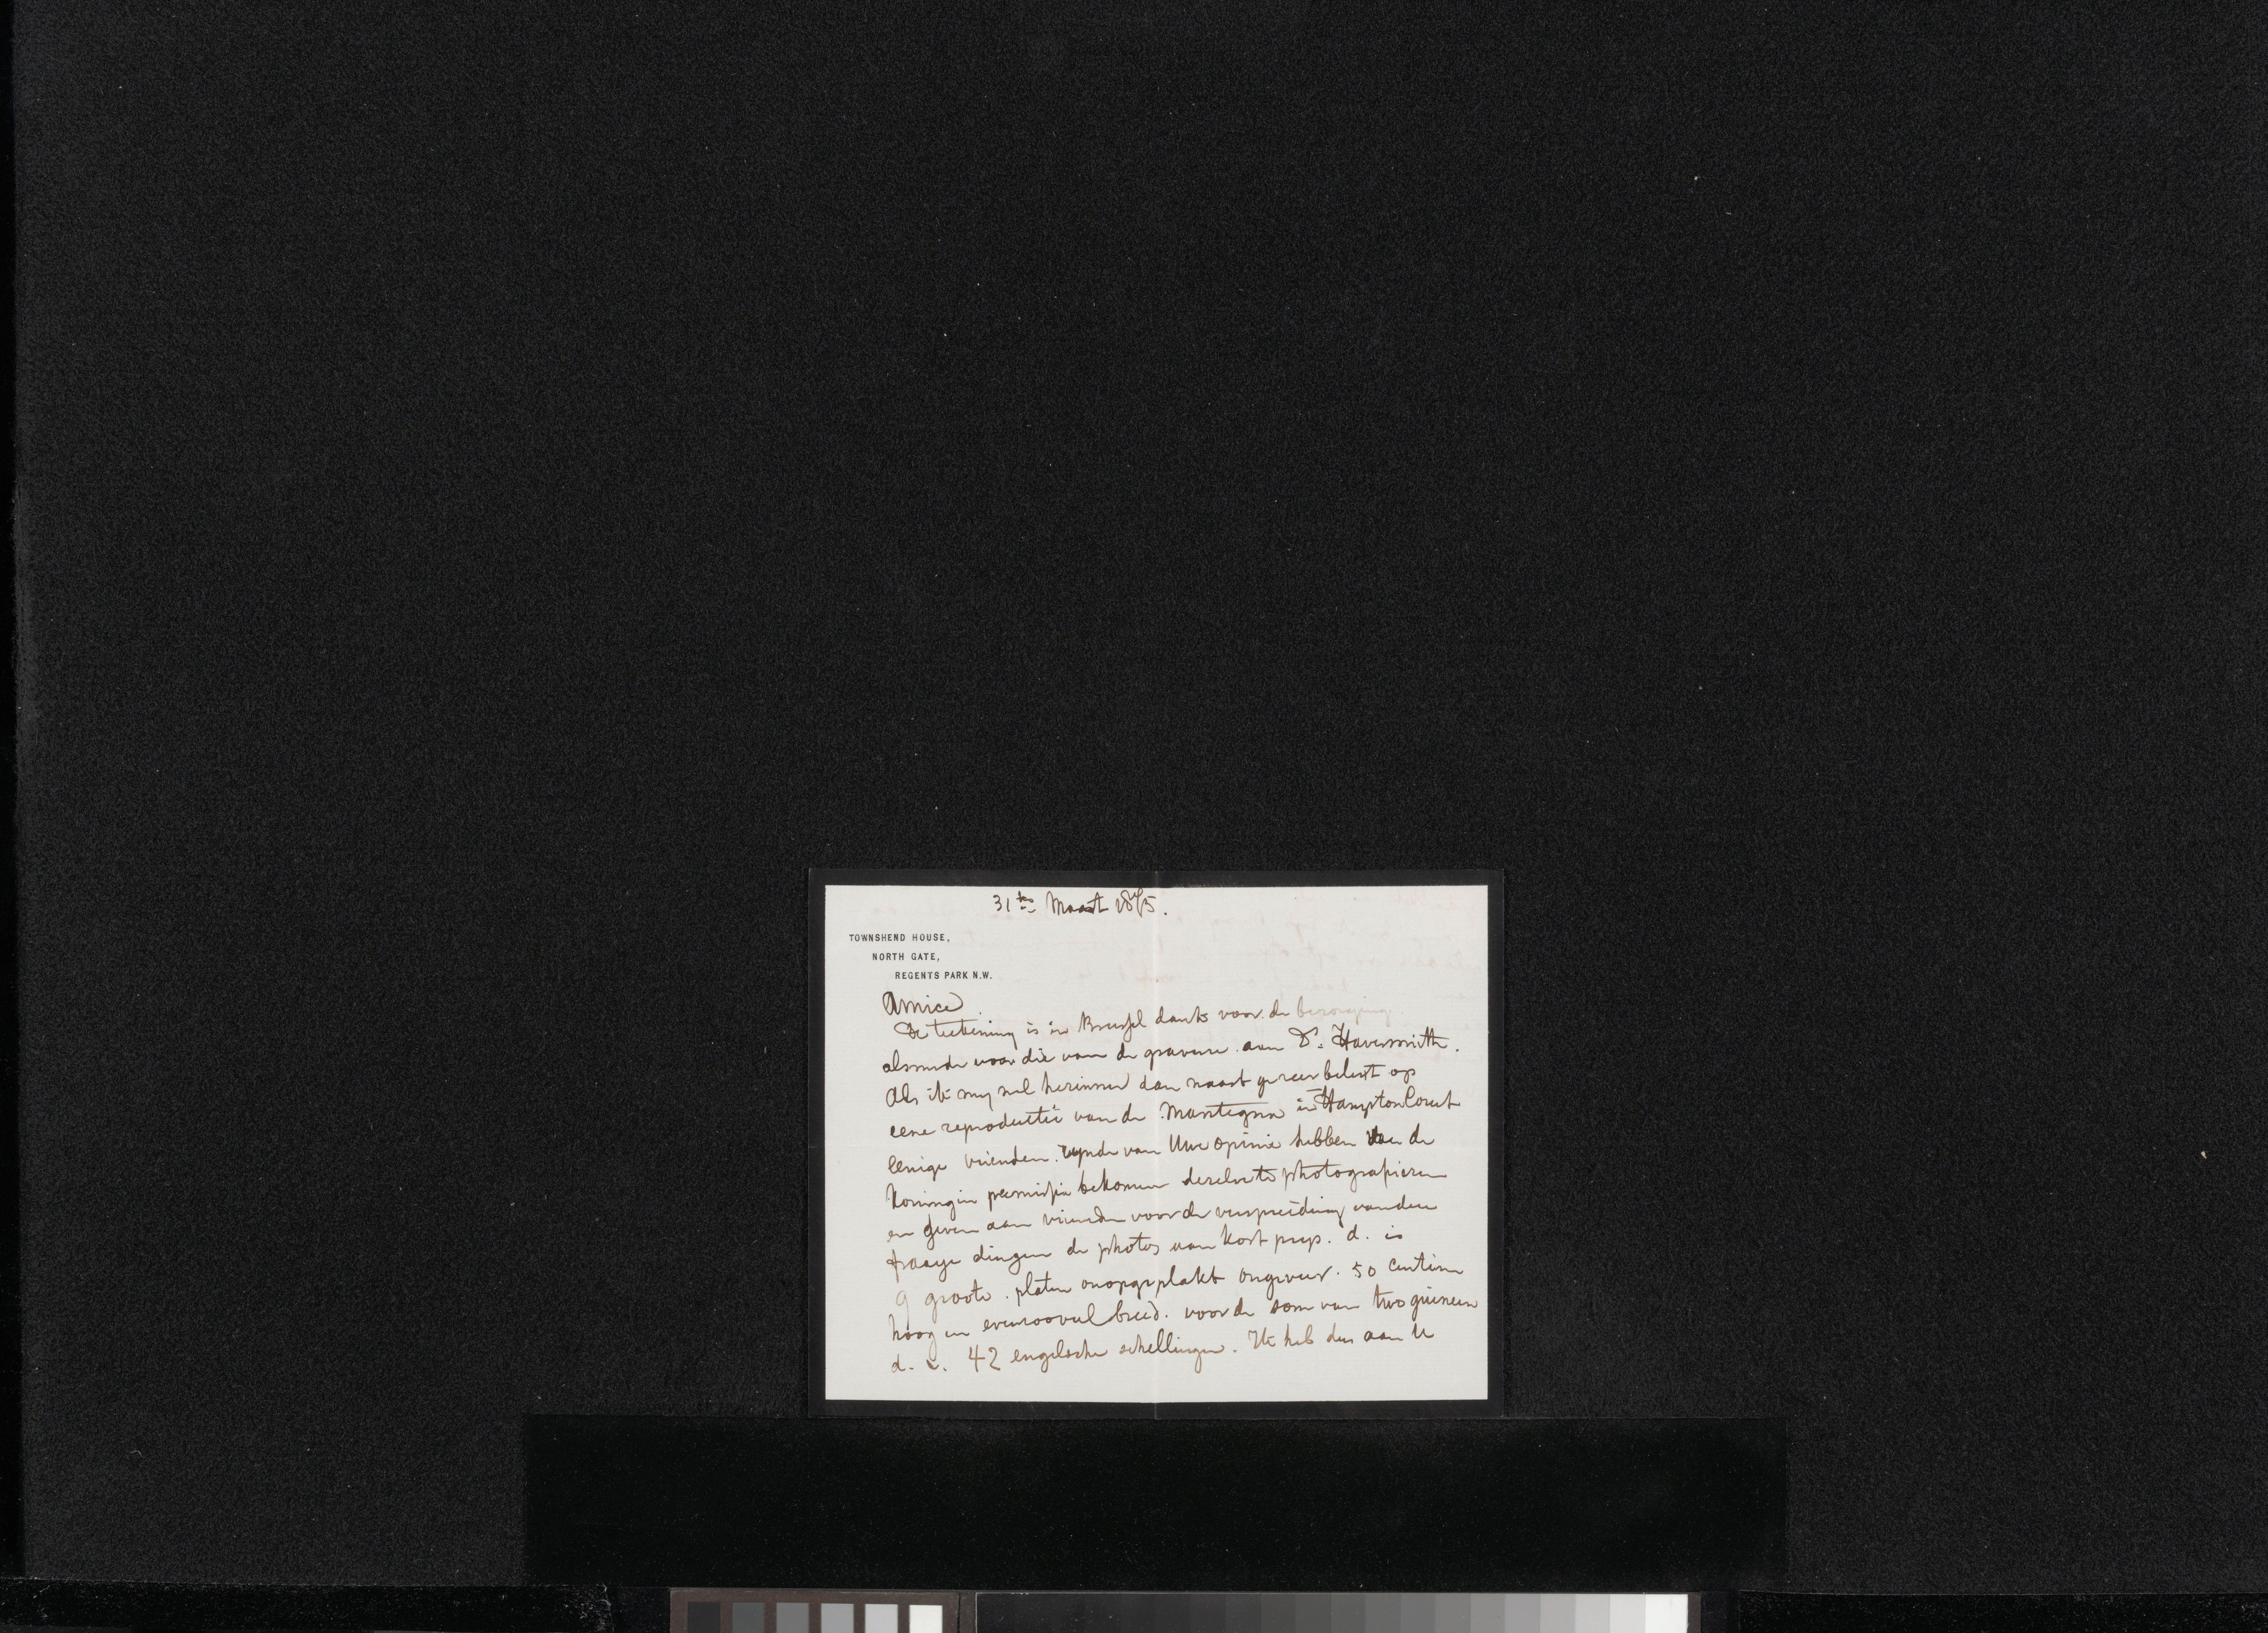 31ste Maart 1875.
TOWNSHEND HOUSE,
NORTH GATE,
REGENTS PARK N.W.
Amice
De teekening is in Brussel dank voor de bezorging
alsmede voor die van de gravure aan Dr. Haversmith.
Als ik my wel herinner dan waart ge zeer belust op
eene reproductie van de Mantegna in Hampton Court
Eenige vrienden zynde van Uwe opinie hebben van de
Koningin permissie bekomen dezelve te photograpieren
en geven aan vrienden voor de verspreiding van den
fraaye dingen de photos van kost prys. d. is
9 groote platen onopgeplakt ongeveer 50 centim
hoog en evenzooveel breed. voor de som van two guineen
d. i. 42 engelsche schellingen. Ik heb dus aan U